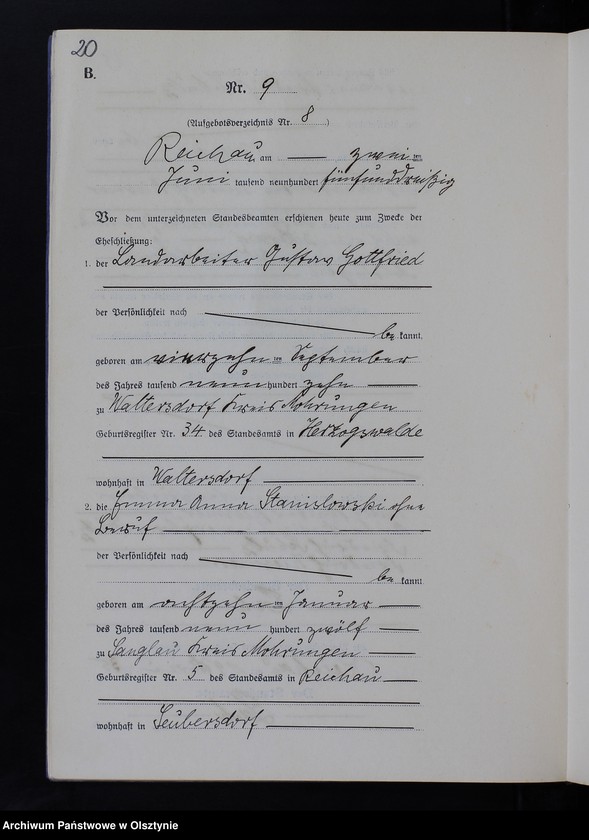 20
B.
Nr. 9
(Aufgebotsverzeichnis Nr. 8)
Reichau, am — zwei ten
Juni tausend neunhundert fünfunddreißig
Vor dem unterzeichneten Standesbeamten erschienen heute zum Zwecke der
Eheschließung:
1. der Landarbeiter Gustav Gottfried
der Persönlichkeit nach
be kannt,
geboren am vierzehn ten September
des Jahres tausend neun hundert zehn
zu Waltersdorf Kreis Mohrungen
Geburtsregister Nr. 34 des Standesamts in Herzogswalde
wohnhaft in Waltersdorf
2. die Emma Anna Stanislowski ohne
Beruf
der Persönlichkeit nach
be kannt
geboren am achtzehn ten Januar
des Jahres tausend neun hundert zwölf
zu Sanglau Kreis Mohrungen
Geburtsregister Nr. 5 des Standesamts in Reichau
wohnhaft in Seubersdorf
Archiwum Państwowe w Olsztynie